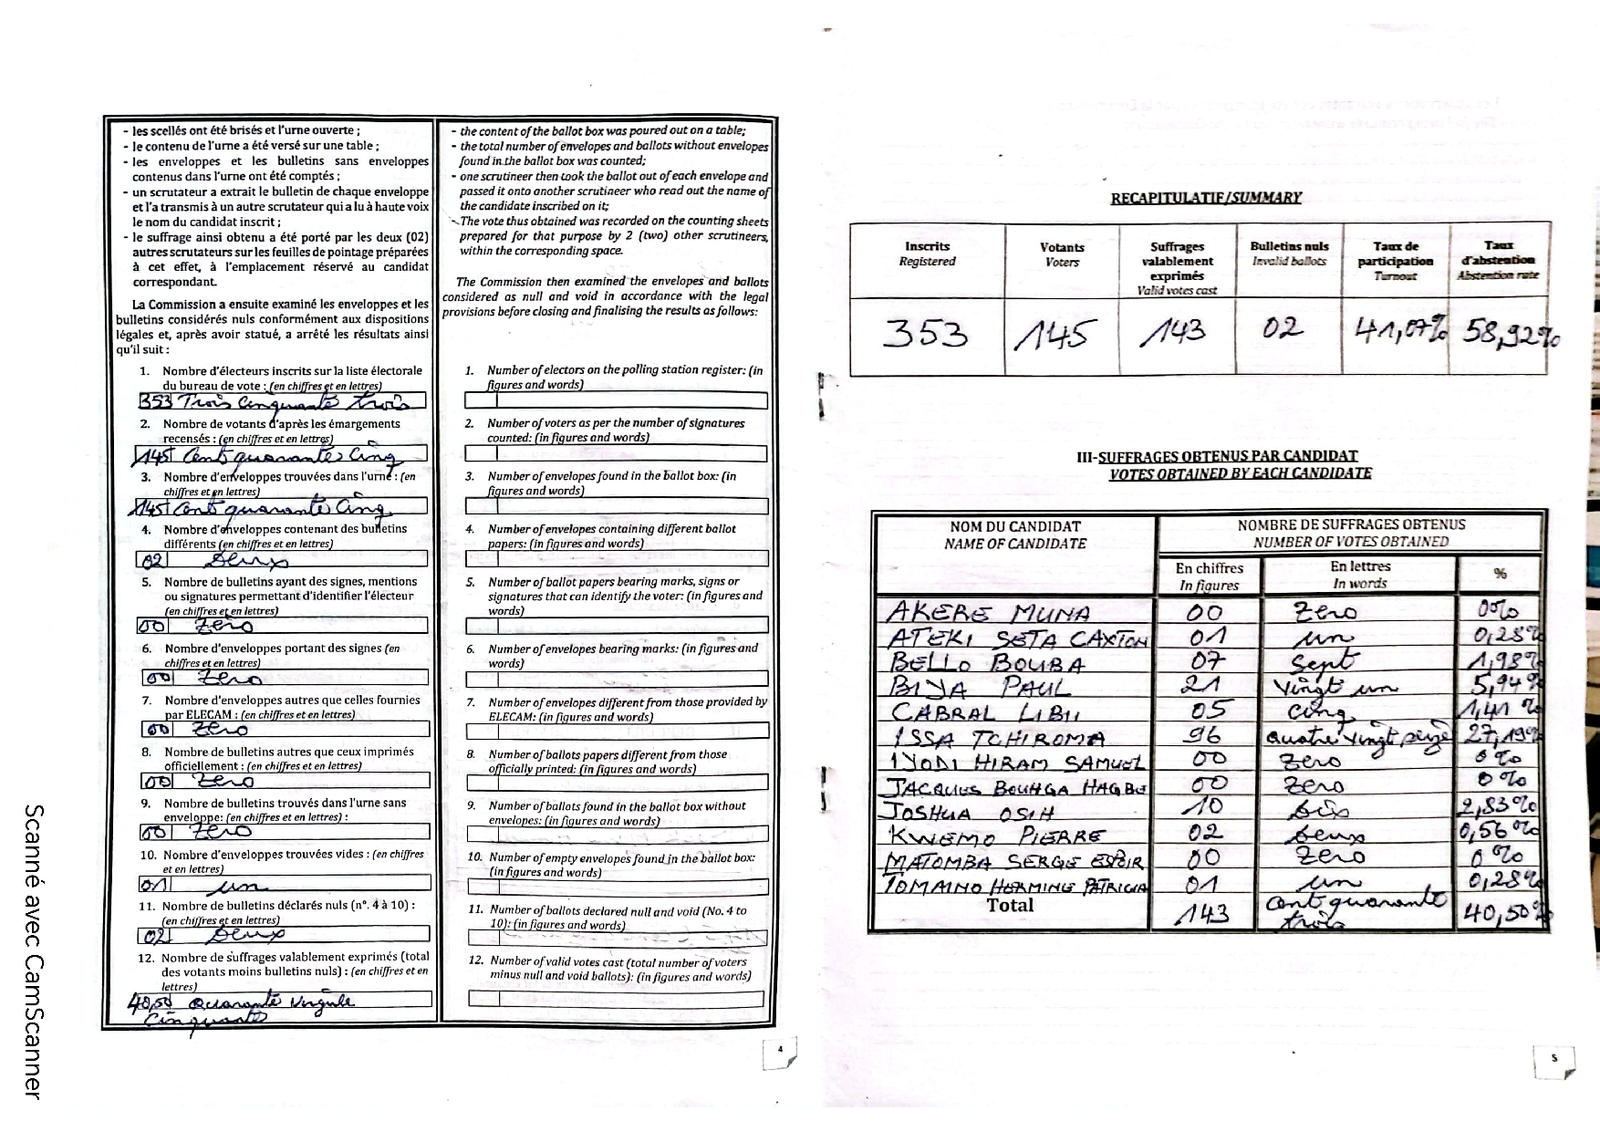 - les scellés ont été brisés et l'urne ouverte ;
- le contenu de l'urne a été versé sur une table ;
- les enveloppes et les bulletins sans enveloppes
contenus dans l'urne ont été comptés ;
- un scrutateur a extrait le bulletin de chaque enveloppe
et l'a transmis à un autre scrutateur qui a lu à haute voix
le nom du candidat inscrit ;
- le suffrage ainsi obtenu a été porté par les deux (02)
autres scrutateurs sur les feuilles de pointage préparées
à cet effet, à l'emplacement réservé au candidat
correspondant.
La Commission a ensuite examiné les enveloppes et les
bulletins considérés nuls conformément aux dispositions
légales et, après avoir statué, a arrêté les résultats ainsi
qu'il suit :
1. Nombre d'électeurs inscrits sur la liste électorale
du bureau de vote : (en chiffres et en lettres)
353 Trois Cinquante trois
2. Nombre de votants d'après les émargements
recensés : (en chiffres et en lettres)
145 Cent quarante Cinq
3. Nombre d'enveloppes trouvées dans l'urne : (en
chiffres et en lettres)
145 Cent quarante Cinq
4. Nombre d'enveloppes contenant des bulletins
différents (en chiffres et en lettres)
02 Deux
5. Nombre de bulletins ayant des signes, mentions
ou signatures permettant d'identifier l'électeur
(en chiffres et en lettres)
00 Zero
6. Nombre d'enveloppes portant des signes (en
chiffres et en lettres)
00 Zero
7. Nombre d'enveloppes autres que celles fournies
par ELECAM : (en chiffres et en lettres)
00 Zero
8. Nombre de bulletins autres que ceux imprimés
officiellement : (en chiffres et en lettres)
00 Zero
9. Nombre de bulletins trouvés dans l'urne sans
enveloppe: (en chiffres et en lettres) :
00 Zero
10. Nombre d'enveloppes trouvées vides : (en chiffres
et en lettres)
01 un
11. Nombre de bulletins déclarés nuls (n°. 4 à 10) :
(en chiffres et en lettres)
02 Deux
12. Nombre de suffrages valablement exprimés (total
des votants moins bulletins nuls) : (en chiffres et en
lettres)
40,50 Quarante Virgule
Cinquante
- the content of the ballot box was poured out on a table;
- the total number of envelopes and ballots without envelopes
found in the ballot box was counted;
- one scrutineer then took the ballot out of each envelope and
passed it onto another scrutineer who read out the name of
the candidate inscribed on it;
- The vote thus obtained was recorded on the counting sheets
prepared for that purpose by 2 (two) other scrutineers,
within the corresponding space.
The Commission then examined the envelopes and ballots
considered as null and void in accordance with the legal
provisions before closing and finalising the results as follows:
1. Number of electors on the polling station register: (in
figures and words)
2. Number of voters as per the number of signatures
counted: (in figures and words)
3. Number of envelopes found in the ballot box: (in
figures and words)
4. Number of envelopes containing different ballot
papers: (in figures and words)
5. Number of ballot papers bearing marks, signs or
signatures that can identify the voter: (in figures and
words)
6. Number of envelopes bearing marks: (in figures and
words)
7. Number of envelopes different from those provided by
ELECAM: (in figures and words)
8. Number of ballots papers different from those
officially printed: (in figures and words)
9. Number of ballots found in the ballot box without
envelopes: (in figures and words)
10. Number of empty envelopes found in the ballot box:
(in figures and words)
11. Number of ballots declared null and void (No. 4 to
10): (in figures and words)
12. Number of valid votes cast (total number of voters
minus null and void ballots): (in figures and words)
4
RECAPITULATIF/SUMMARY
Inscrits Votants Suffrages Bulletins nuls Taux de Taux
Registered Voters valablement Invalid ballots participation d'abstention
exprimés Turnout Abstention rate
Valid votes cast
353 145 143 02 41,07% 58,92%
III-SUFFRAGES OBTENUS PAR CANDIDAT
VOTES OBTAINED BY EACH CANDIDATE
NOM DU CANDIDAT NOMBRE DE SUFFRAGES OBTENUS
NAME OF CANDIDATE NUMBER OF VOTES OBTAINED
En chiffres En lettres %
In figures In words
AKERE MUNA 00 Zero 0%
ATEKI SETA CAXTON 01 un 0,28%
BELLO BOUBA 07 Sept 1,98%
BIYA PAUL 21 Vingt un 5,94%
CABRAL LIBII 05 Cinq 1,41 %
ISSA TCHIROMA 96 Quatre Vingt seize 27,19%
IYODI HIRAM SAMUEL 00 Zero 0 %
JACQUES BOUHGA HAGBE 00 Zero 0 %
JOSHUA OSIH 10 Dix 2,83%
KWEMO PIERRE 02 Deux 0,56 %
MATOMBA SERGE ESPOIR 00 Zero 0 %
TOMAINO HERMINE PATRICIA 01 un 0,28%
Total 143 Cent quarante trois 40,50%
5
Scanné avec CamScanner